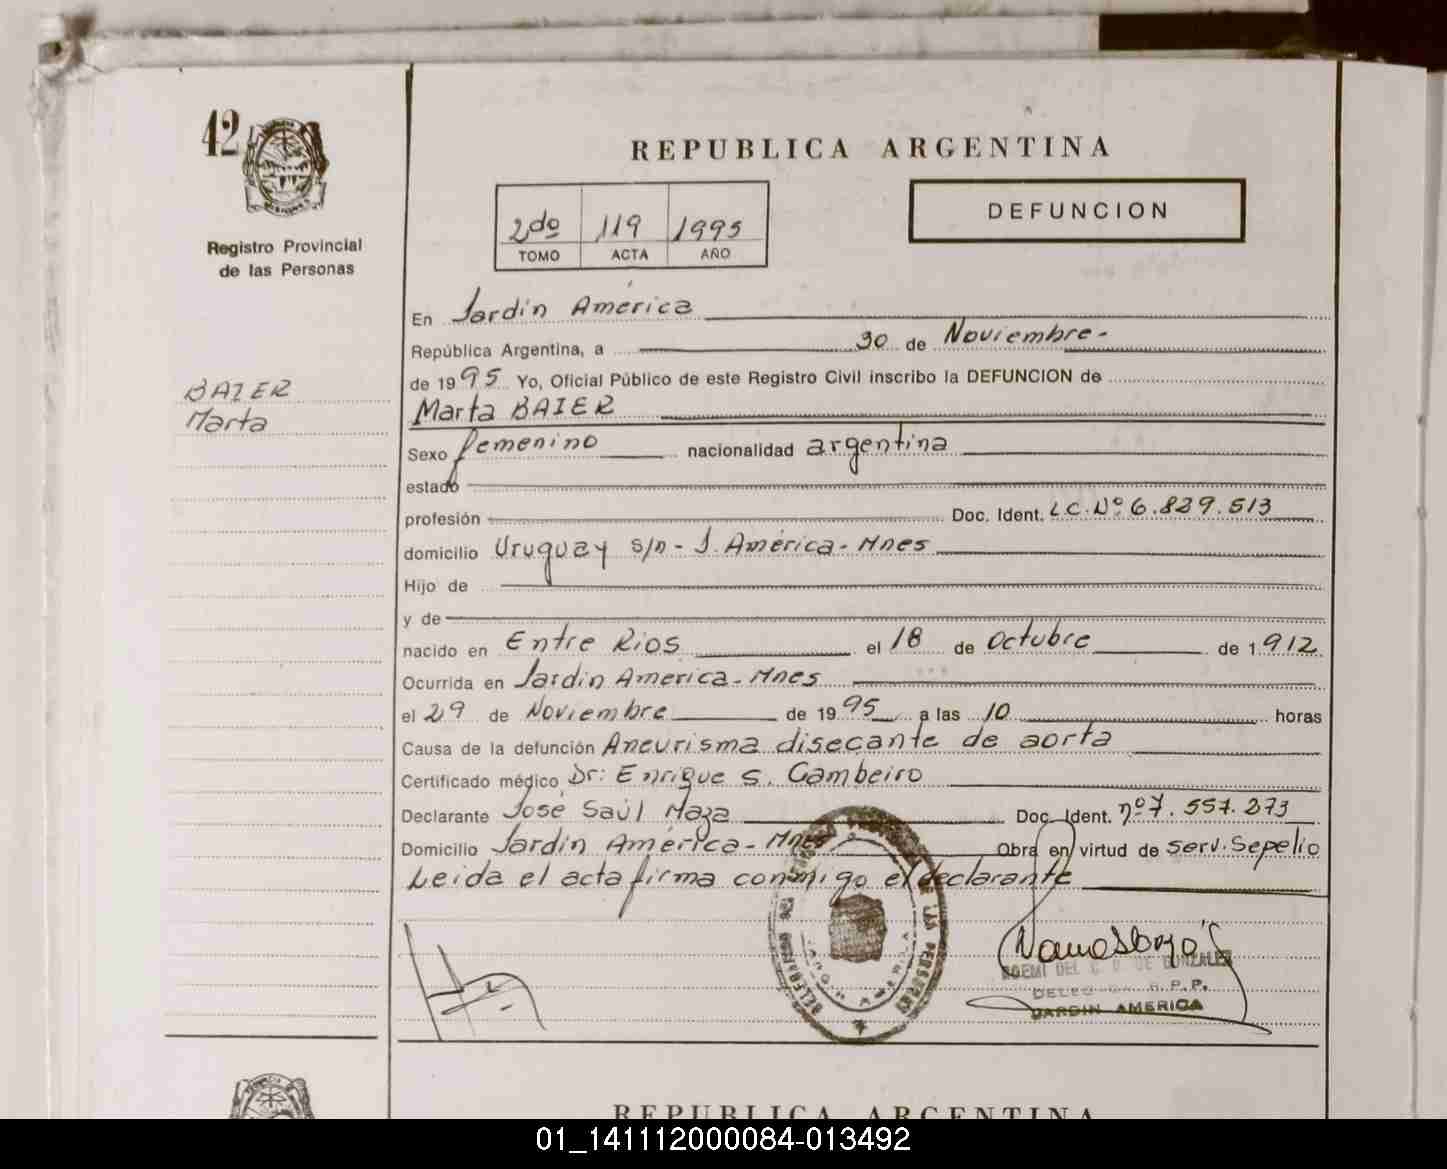 42
Registro Provincial
de las Personas
BAIER
Marta
REPUBLICA ARGENTINA
2do 119 1995
TOMO ACTA AÑO
DEFUNCION
En Jardin América
República Argentina, a 30 de Noviembre-
de 1995 Yo, Oficial Público de este Registro Civil inscribo la DEFUNCION de
Marta BAIER
Sexo femenino nacionalidad argentina
estado
profesión Doc. Ident. L.C. Nº 6.829.513
domicilio Uruguay s/n - J. América - Mnes
Hijo de
y de
nacido en Entre Rios el 18 de Octubre de 1912
Ocurrida en Jardin America - Mnes
el 29 de Noviembre de 1995 a las 10 horas
Causa de la defunción Aneurisma disecante de aorta
Certificado médico Dr: Enrique S. Gambeiro
Declarante José Saúl Maza Doc. Ident. nº 7.557.273
Domicilio Jardin América - Mnes Obra en virtud de serv. Sepelio
Leida el acta firma conmigo el declarante
JARDIN AMERICA
DE LAS PERSONAS
DE GONZALEZ
R.P.P.
JARDIN AMERICA
REPUBLICA ARGENTINA
01_141112000084-013492